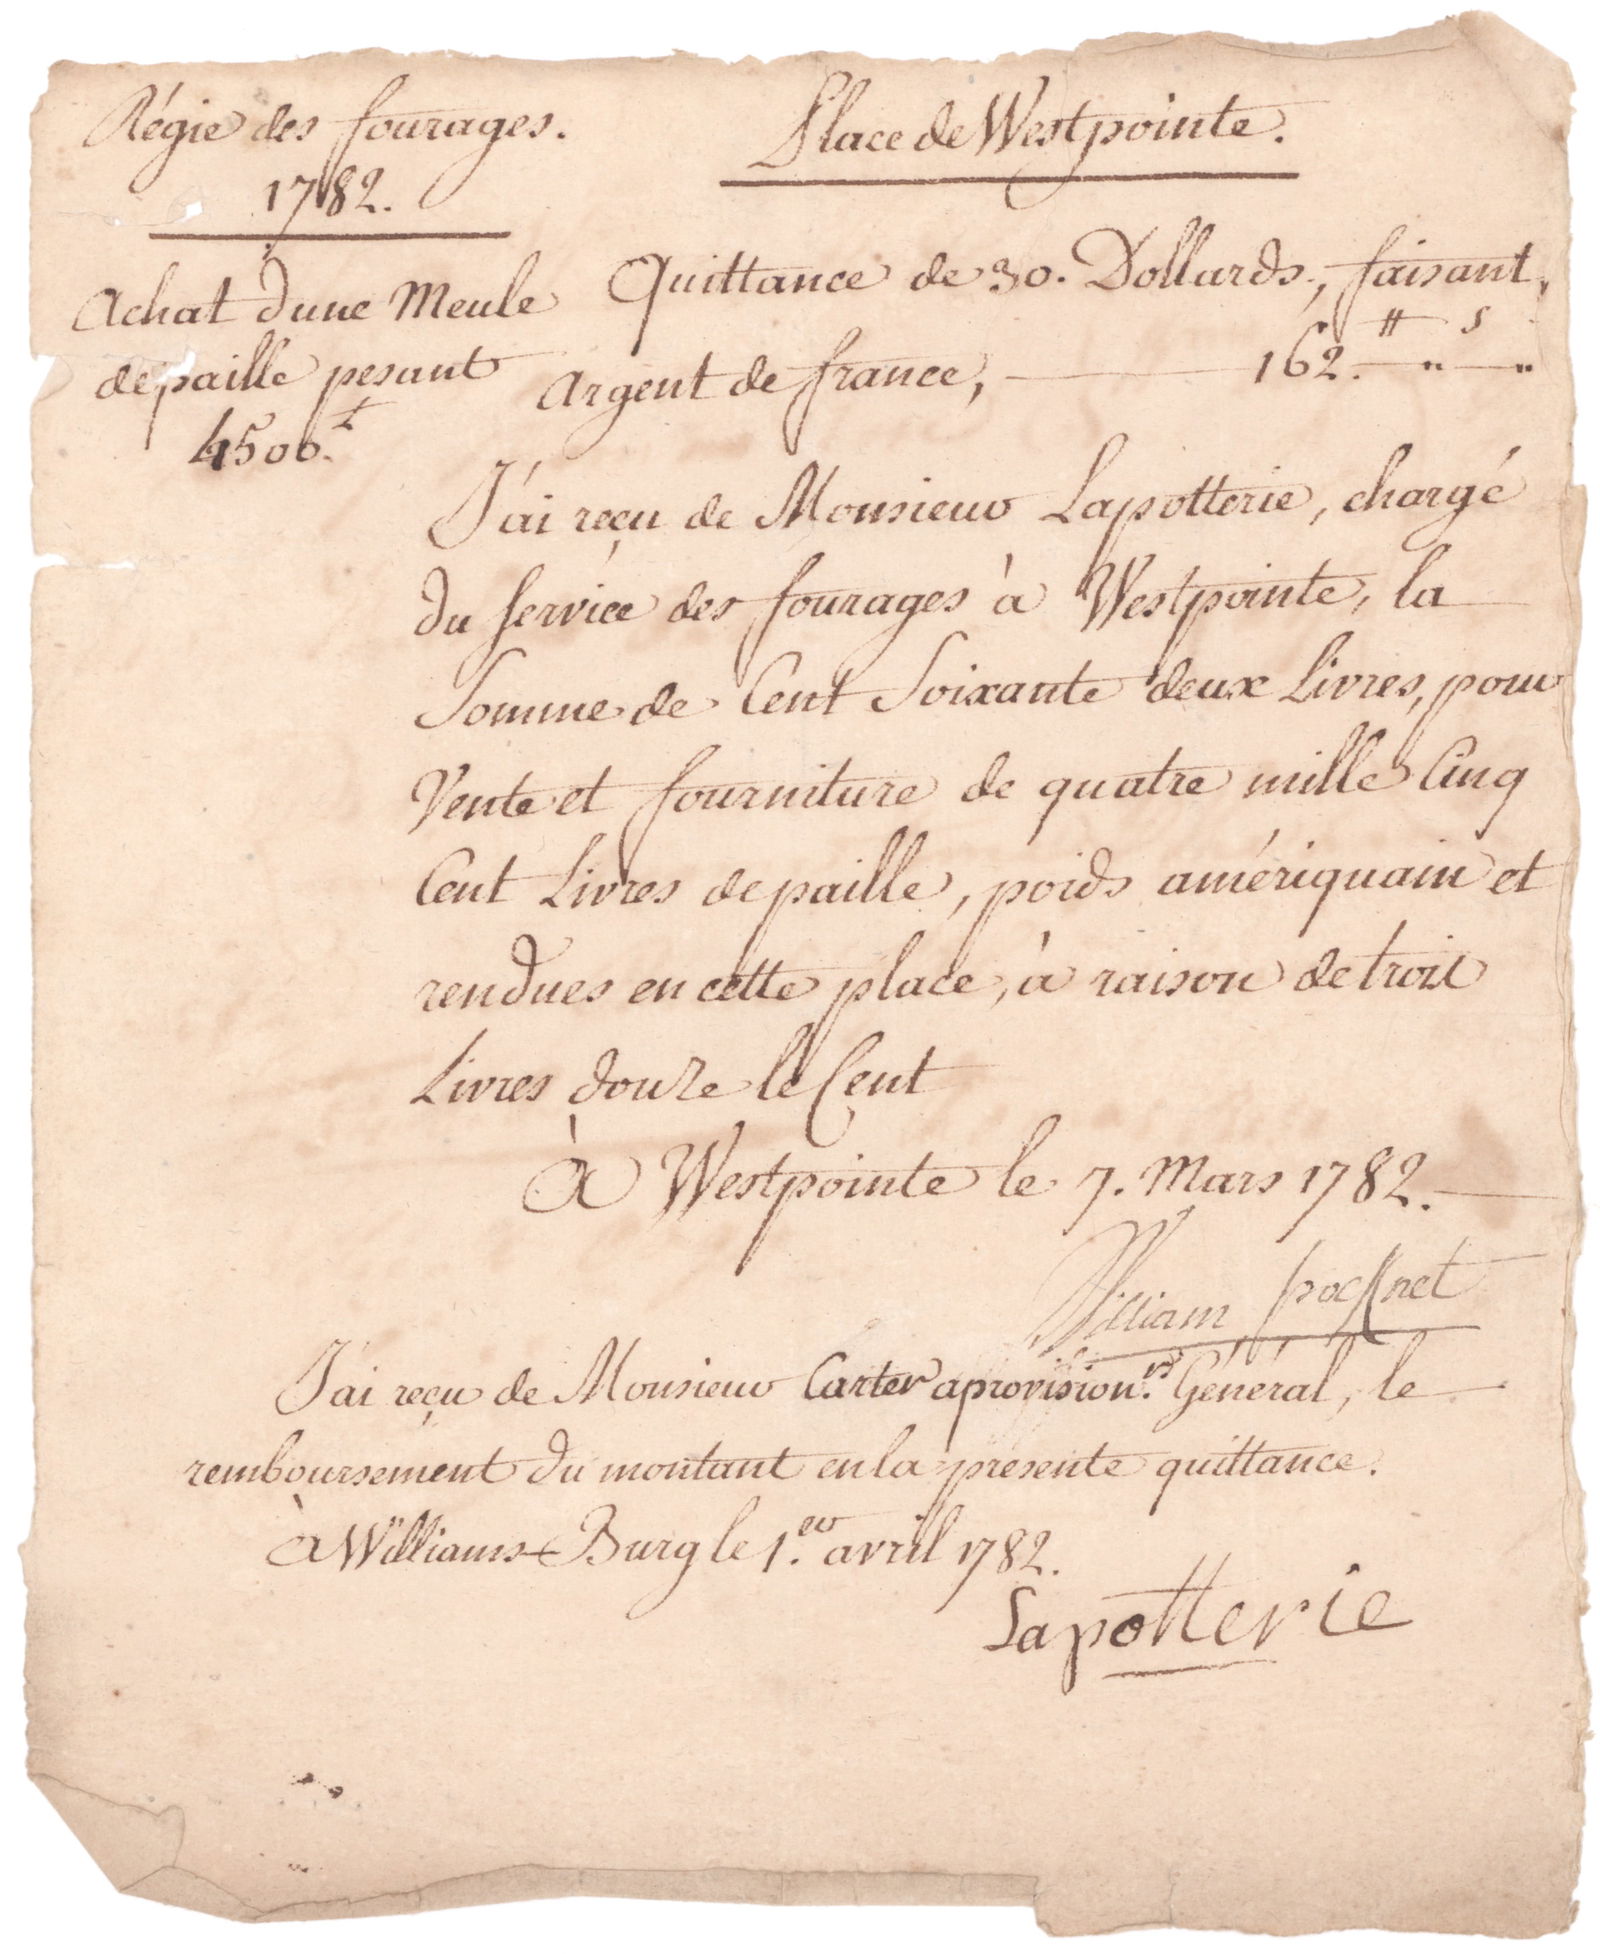 Régie des fourages.
1782.
Place de Westpointe.
Achat dune Meule
de paille pesant
4500.
Quittance de 30. Dollards, faisant,
# s
argent de france, 162. " "
J'ai reçu de Monsieur Lapotterie, chargé
du service des fourages à Westpointe, la
Somme de Cent Soixante deux Livres, pour
Vente et fourniture de quatre mille Cinq
Cent Livres de paille, poids amériquain et
rendues en cette place, à raison de trois
Livres douze le Cent
à Westpointe le 7. Mars 1782.
William
J'ai reçu de Monsieur Carter aprovision.r Général, le
remboursement du montant en la présente quittance.
à Williams-Burg le 1.er avril 1782.
Lapotterie